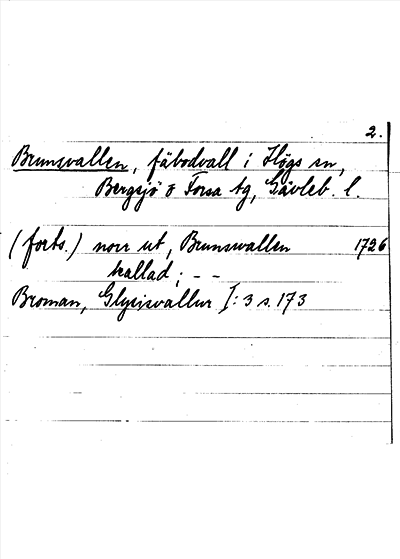 2.
Brunsvallen, fäbodvall i Högs sn,
Bergsjö o Forsa tg, Gävleb. l.
(forts.) norr ut, Brunswallen 1726
kallad; - -
Broman, Glysisvallur I: 3 s. 173